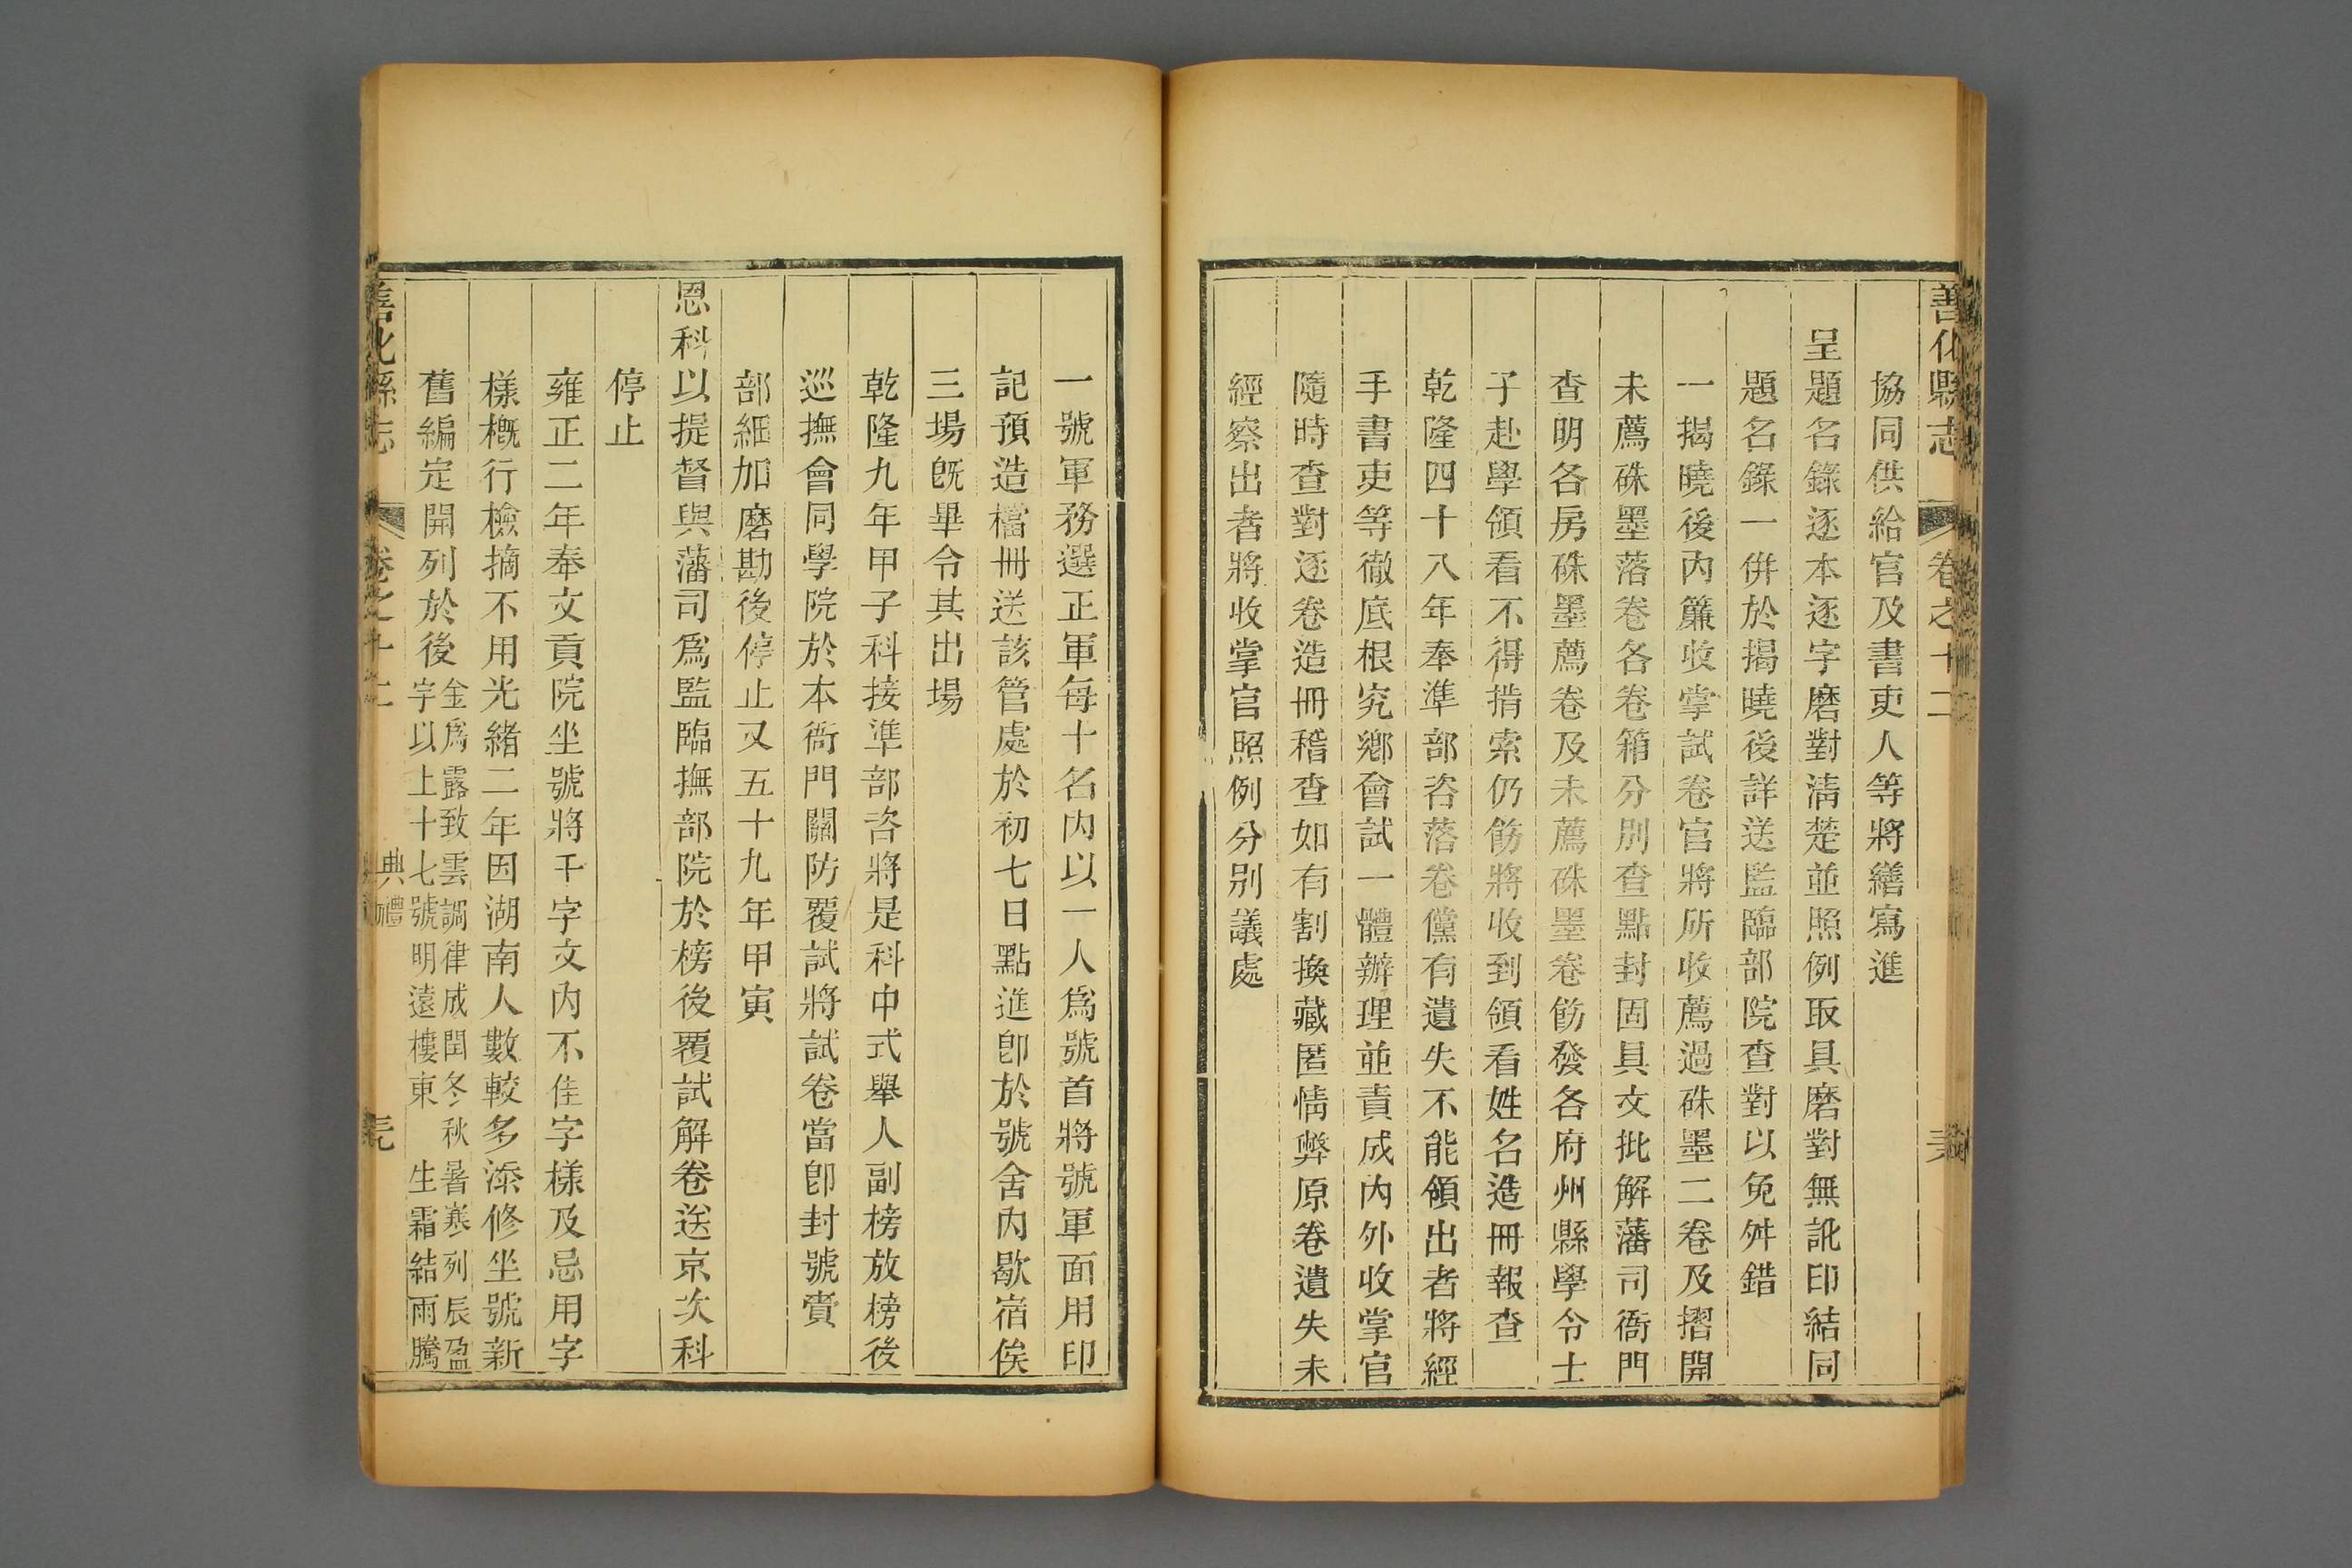 善化縣志
卷之十二
協同供給官及書吏人等將繕寫進
呈題名錄逐本逐字磨對清楚並照例取具磨對無訛印結同
題名錄一併於揭曉後詳送監臨部院查對以免舛錯
一揭曉後內簾收掌試卷官將所收薦過硃墨二卷及摺開
未薦硃墨落卷各卷箱分別查點封固具文批解藩司衙門
查明各房硃墨薦卷及未薦硃墨卷飭發各府州縣學令士
子赴學領看不得掯索仍飭將收到領看姓名造冊報查
乾隆四十八年奉準部咨落卷儻有遺失不能領出者將經
手書吏等徹底根究鄉會試一體辦理並責成內外收掌官
隨時查對逐卷造冊稽查如有割換藏匿情弊原卷遺失未
經察出者將收掌官照例分別議處
一號軍務選正軍每十名內以一人爲號首將號軍面用印
記預造檔冊送該管處於初七日點進卽於號舍內歇宿俟
三場旣畢令其出場
乾隆九年甲子科接準部咨將是科中式舉人副榜放榜後
巡撫會同學院於本衙門關防覆試將試卷當卽封號賫
部細加磨勘後停止又五十九年甲寅
恩科以提督與藩司爲監臨撫部院於榜後覆試解卷送京次科
停止
雍正二年奉文貢院坐號將千字文內不佳字樣及忌用字
樣概行檢摘不用光緒二年因湖南人數較多添修坐號新
舊編定開列於後
金爲 露致雲調律成閏冬秋暑寒列辰盈
字以上十七號明遠樓東 生霜結雨騰
善化縣志
卷之十二
典禮